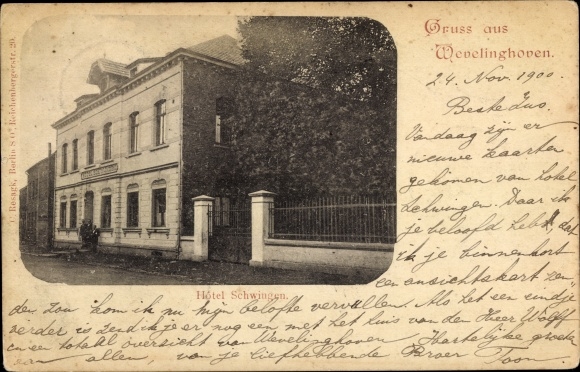 Gruss aus
Wevelinghoven.
24. Nov. 1900.
Beste Zus.
Vandaag zijn er
nieuwe kaarten
gekomen van hotel
Schwingen. Daar ik
je beloofd heb, dat
ik je binnenkort
een ansichtskart zen"
den zou kom ik nu mijn belofte vervullen. Als het een eindje
verder is zend ik je er nog een met het huis van den Heer Wolff
en een totaal oversicht van Wevelinghoven. Hartelijke groete
aan allen, van je liefhebbende Broer Toon.
Hôtel Schwingen.
C. Resagk, Berlin S O., Reichenbergerstr. 20.